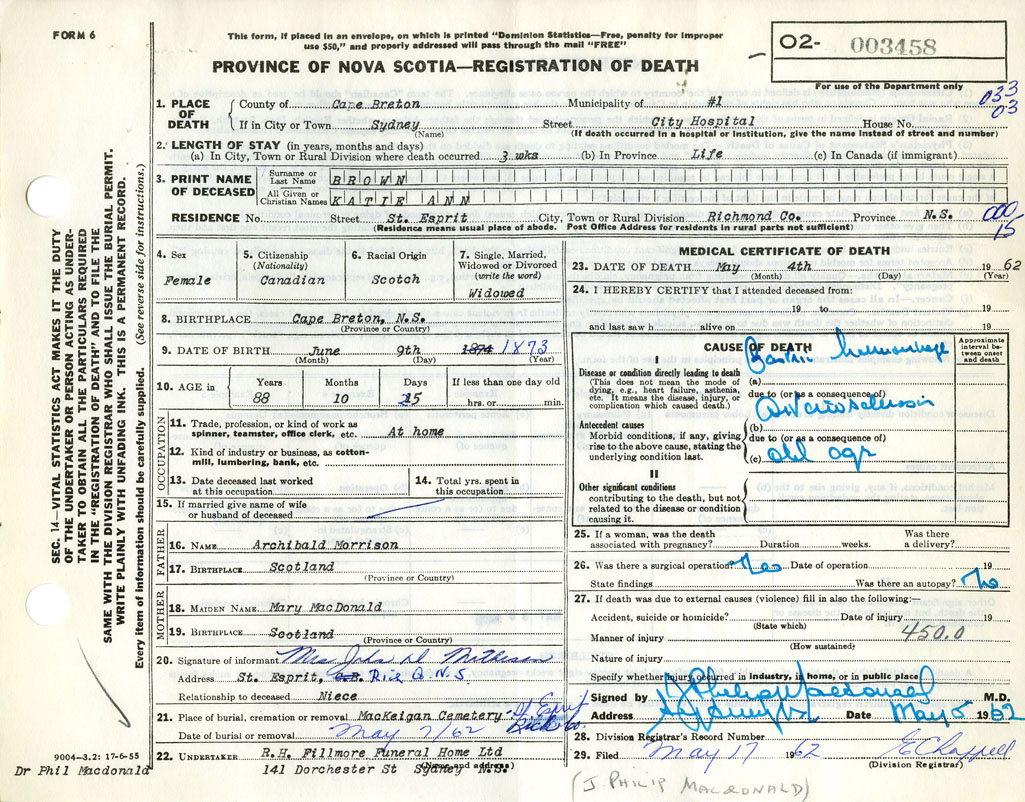 FORM 6
This form, if placed in an envelope, on which is printed "Dominion Statistics—Free, penalty for improper
use $50," and properly addressed will pass through the mail "FREE"
O2- 003458
PROVINCE OF NOVA SCOTIA—REGISTRATION OF DEATH
For use of the Department only
033
03
1. PLACE OF DEATH
County of Cape Breton Municipality of #1
If in City or Town Sydney Street City Hospital House No.
(Name) (If death occurred in a hospital or institution, give the name instead of street and number)
2. LENGTH OF STAY (in years, months and days)
(a) In City, Town or Rural Division where death occurred 3 wks (b) In Province Life (c) In Canada (if immigrant)
3. PRINT NAME OF DECEASED
Surname or Last Name BROWN
All Given or Christian Names KATIE ANN
RESIDENCE No. Street St. Esprit City, Town or Rural Division Richmond Co. Province N.S.
(Residence means usual place of abode. Post Office Address for residents in rural parts not sufficient)
000
15
4. Sex
Female
5. Citizenship
(Nationality)
Canadian
6. Racial Origin
Scotch
7. Single, Married,
Widowed or Divorced
(write the word)
Widowed
8. BIRTHPLACE Cape Breton, N.S.
(Province or Country)
9. DATE OF BIRTH June 9th 1874 1873
(Month) (Day) (Year)
10. AGE in
Years Months Days If less than one day old
88 10 25 hrs. or min.
OCCUPATION
11. Trade, profession, or kind of work as
spinner, teamster, office clerk, etc. At home
12. Kind of industry or business, as cotton-
mill, lumbering, bank, etc.
13. Date deceased last worked
at this occupation
14. Total yrs. spent in
this occupation
15. If married give name of wife
or husband of deceased
FATHER
16. NAME Archibald Morrison
17. BIRTHPLACE Scotland
(Province or Country)
MOTHER
18. MAIDEN NAME Mary MacDonald
19. BIRTHPLACE Scotland
(Province or Country)
20. Signature of informant Mrs John
Address St. Esprit, C.B. Rich Co. N.S
Relationship to deceased Niece
21. Place of burial, cremation or removal MacKeigan Cemetery St Esprit
Rich Co.
Date of burial or removal May 7/62
22. UNDERTAKER R.H. Fillmore Funeral Home Ltd
141 Dorchester St Sydney N.S.
(Name and address)
MEDICAL CERTIFICATE OF DEATH
23. DATE OF DEATH May 4th 1962
(Month) (Day) (Year)
24. I HEREBY CERTIFY that I attended deceased from:
19 to 19
and last saw h alive on 19
CAUSE OF DEATH
Approximate interval between onset and death
I
Disease or condition directly leading to death
(This does not mean the mode of
dying, e.g., heart failure, asthenia,
etc. It means the disease, injury, or
complication which caused death.)
(a) Gastric hemorrhage
due to (or as a consequence of)
Antecedent causes
Morbid conditions, if any, giving
rise to the above cause, stating the
underlying condition last.
(b) Arteriosclerosis
due to (or as a consequence of)
(c) old age
II
Other significant conditions
contributing to the death, but not
related to the disease or condition
causing it.
25. If a woman, was the death
associated with pregnancy? Duration weeks. Was there
a delivery?
26. Was there a surgical operation? No Date of operation 19
State findings Was there an autopsy? No
27. If death was due to external causes (violence) fill in also the following:—
Accident, suicide or homicide? Date of injury 19
(State which)
450.0
Manner of injury
(How sustained)
Nature of injury
Specify whether injury occurred in industry, in home, or in public place
Signed by J Philip Macdonald M.D.
Address Date May 5 1962
28. Division Registrar's Record Number
29. Filed May 17 1962 E Chappell
(Division Registrar)
(J. PHILIP MACDONALD)
SEC. 14—VITAL STATISTICS ACT MAKES IT THE DUTY
OF THE UNDERTAKER OR PERSON ACTING AS UNDER-
TAKER TO OBTAIN ALL THE PARTICULARS REQUIRED
IN THE "REGISTRATION OF DEATH" AND TO FILE THE
SAME WITH THE DIVISION REGISTRAR WHO SHALL ISSUE THE BURIAL PERMIT.
WRITE PLAINLY WITH UNFADING INK. THIS IS A PERMANENT RECORD.
Every item of information should be carefully supplied. (See reverse side for instructions.)
9004—3.2: 17-6-55
Dr Phil Macdonald